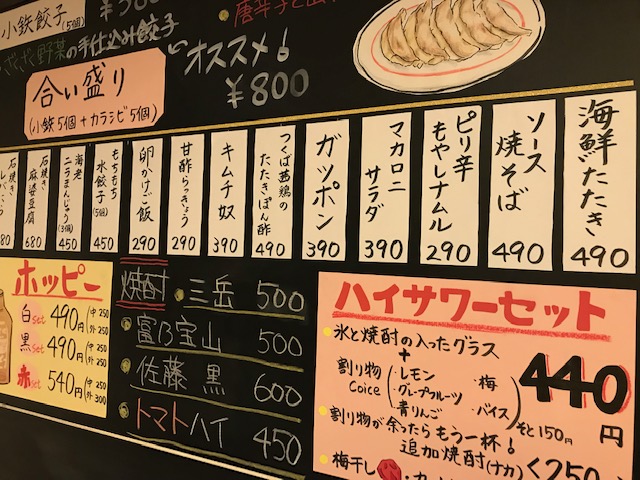 小鉄餃子(5個)
ざくざく野菜の手仕込み餃子
オススメ!
¥800
合い盛り
(小鉄5個+カラシビ5個)
海鮮たたき 490
ソース焼そば 490
ピリ辛もやしナムル 290
マカロニサラダ 390
ガツポン 390
つくば茜鶏のたたきぽん酢 490
キムチ奴 390
甘酢らっきょう 290
卵かけご飯 290
もちもち水餃子(5個) 450
海老ニラまんじゅう(3個) 450
石焼き麻婆豆腐 680
石焼き
80
ホッピー
白set 490円(中250 外250)
黒set 490円(中250 外250)
赤set 540円(中250 外300)
焼酎・三岳 500
・富乃宝山 500
・佐藤 黒 600
・トマトハイ 450
ハイサワーセット
氷と焼酎の入ったグラス
+
割り物 Coice
(・レモン ・梅
・グレープルーツ
・青りんご ・バイス)
440円
そと150円
・割り物が余ったらもう一杯!
追加焼酎(ナカ) <250
・梅干し